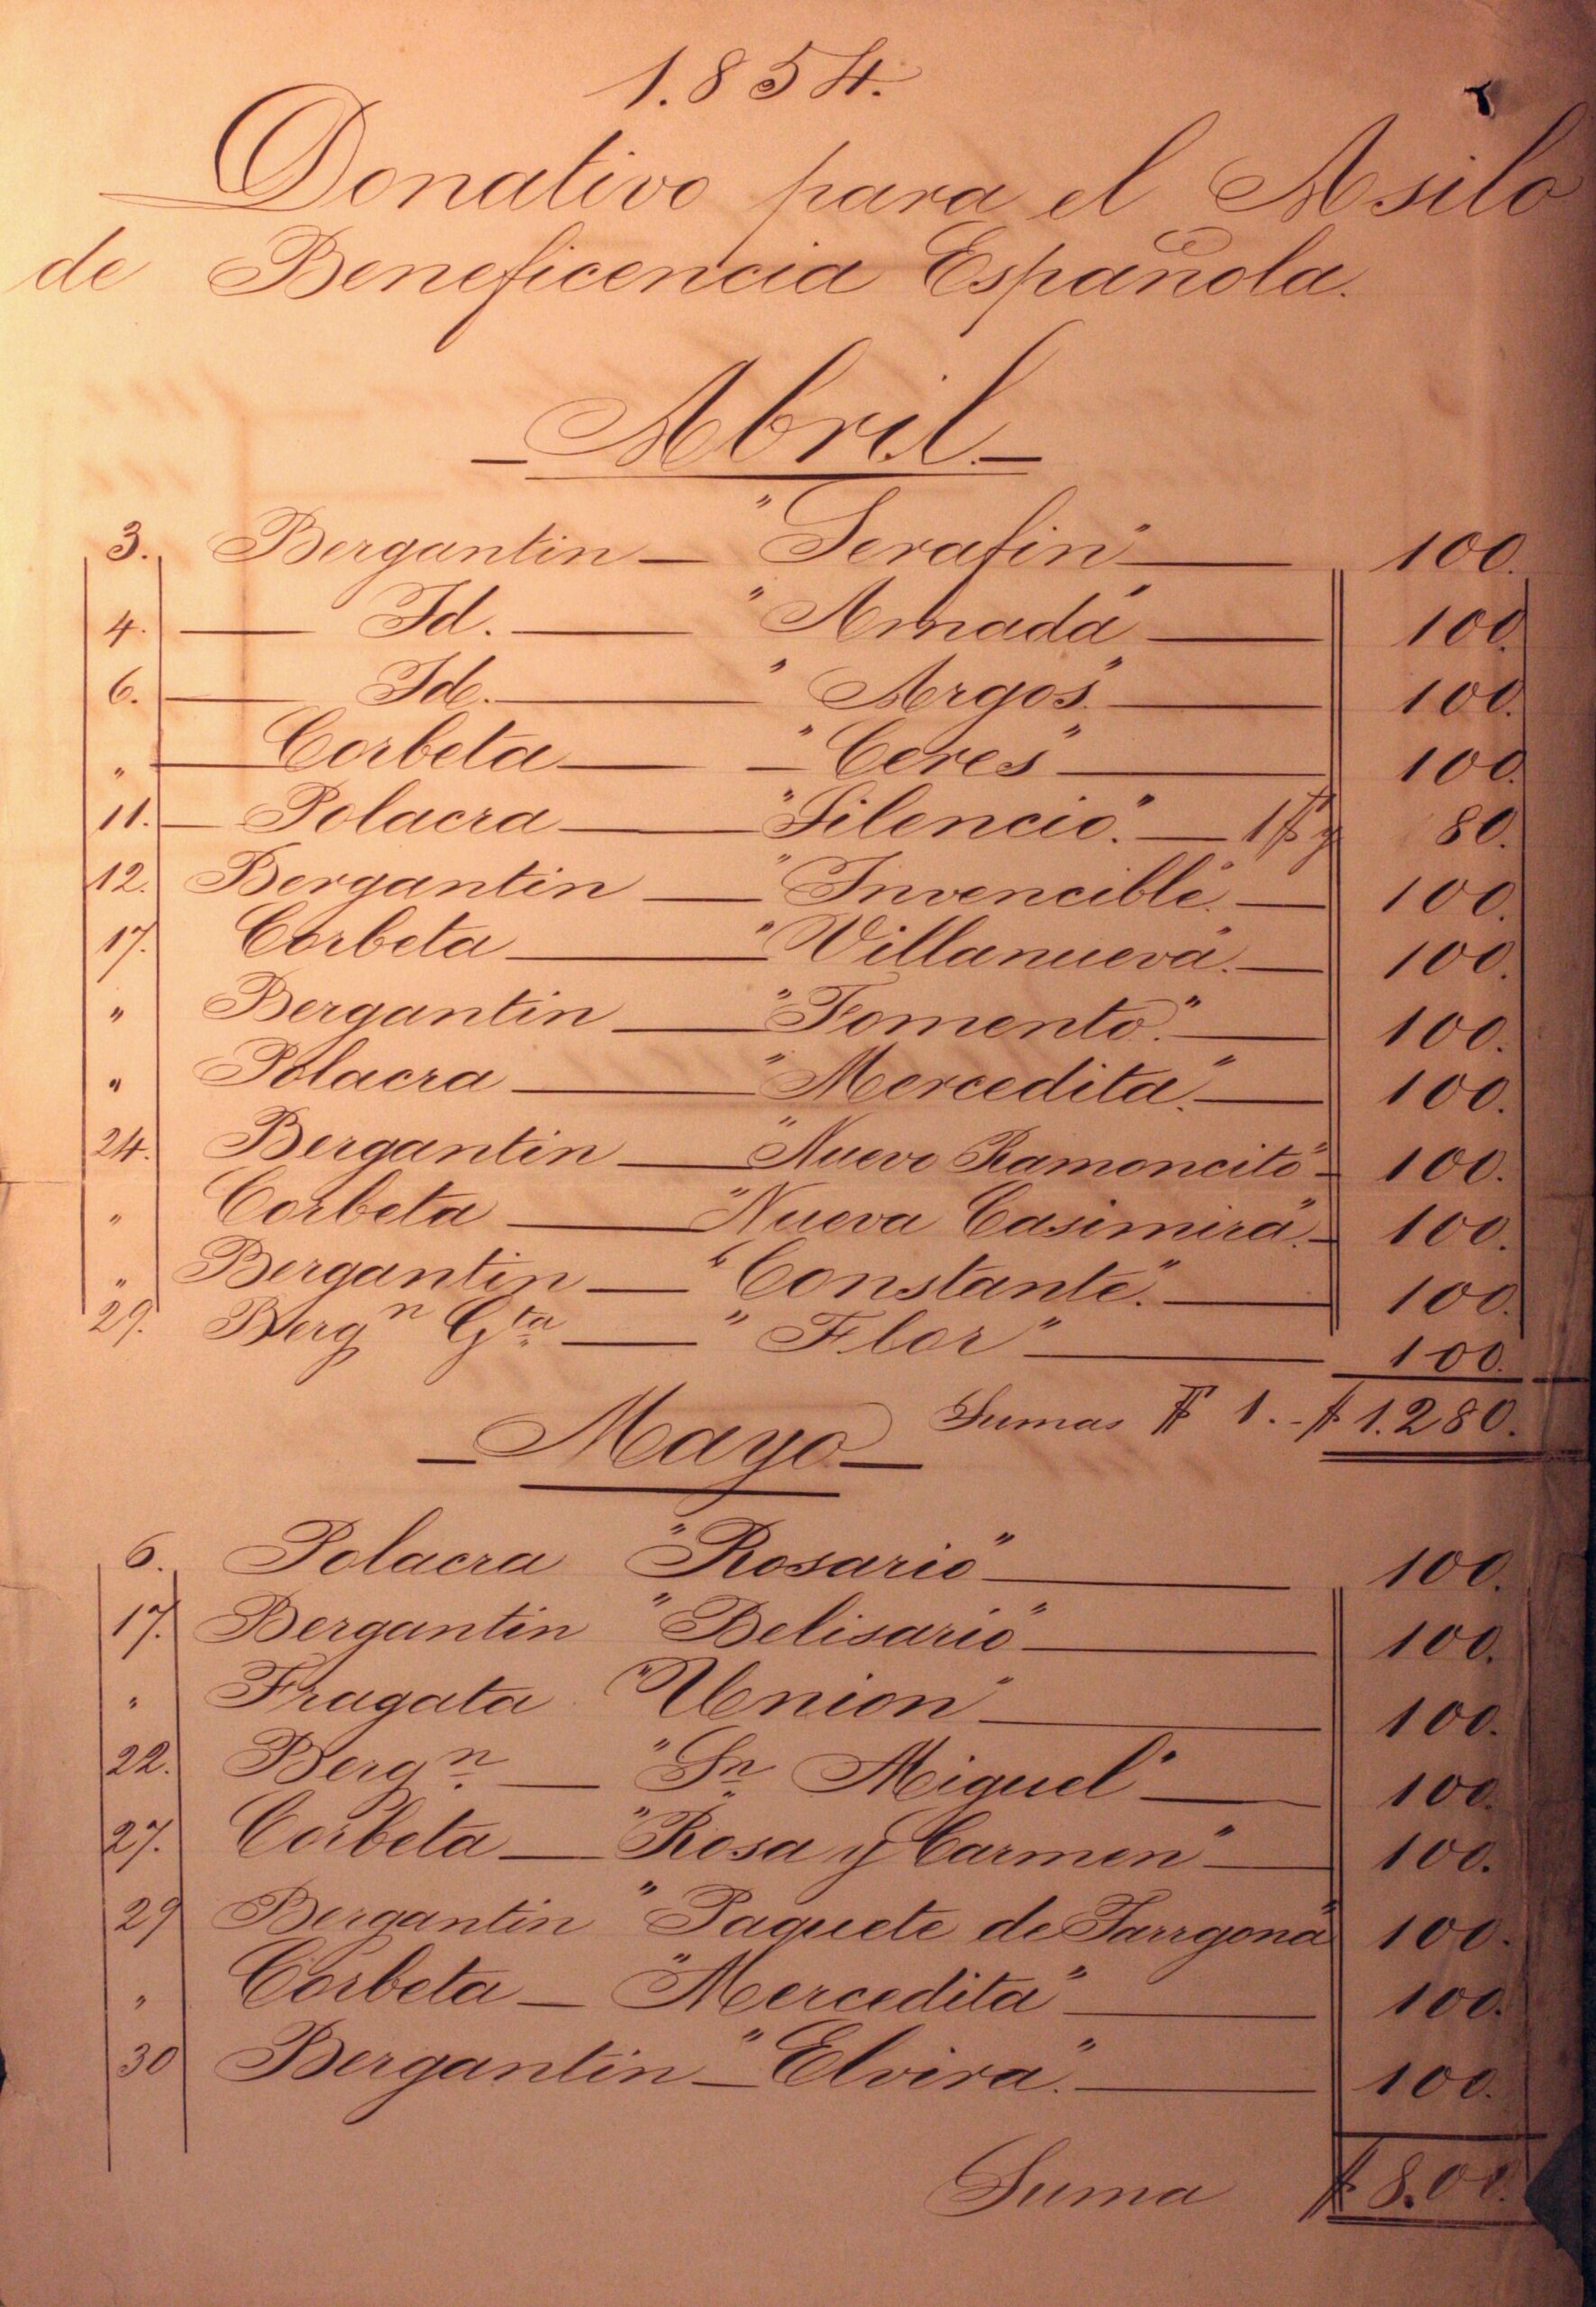 1.854.
Donativo para el Asilo
de Beneficencia Española.
Abril.
3. Bergantin — "Serafin" — 100.
4. — Id. — "Amada" — 100.
6. — Id. — "Argos." — 100.
" — Corbeta — — "Ceres" — 100.
11. — Polacra — "Silencio". — 1 $ y 80.
12. Bergantin — "Invencible". — 100.
17. Corbeta — "Villanueva". — 100.
" Bergantin — "Fomento." — 100.
" Polacra — "Mercedita." — 100.
24. Bergantin — "Nuevo Ramoncito" — 100.
" Corbeta — "Nueva Casimira". — 100.
" Bergantin — "Constante." — 100.
29. Bergn Gta — "Flor" — 100.
Sumas $ 1. - $ 1.280.
— Mayo —
6. Polacra "Rosario" — 100.
17. Bergantin "Belisario" — 100.
" Fragata "Union" — 100.
22. Bergn. — "Sn Miguel" — 100.
27. Corbeta — "Rosa y Carmen" — 100.
29 Bergantin "Paquete de Tarrgona" 100.
" Corbeta — "Mercedita" — 100.
30 Bergantin — "Elvira". — 100.
Suma $ 8.00.